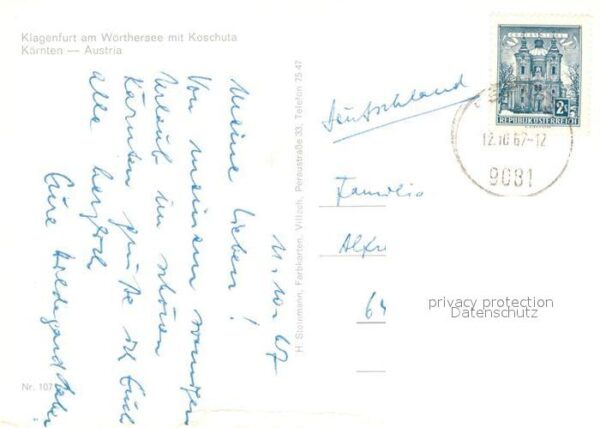 Klagenfurt am Wörthersee mit Koschuta
Kärnten — Austria
11.10.67
Meine Lieben!
Von meinem sonnigen
Urlaub im schönen
Kärnten grüße ich Euch
alle herzlich
Eure Hildegard
Nr. 107
H. Steinmann, Farbkarten, Villach, Peraustraße 33, Telefon 75 47
Deutschland
Familie
Alfr
64
2S
REPUBLIK ÖSTERREICH
12.10.67-12
9081
privacy protection
Datenschutz